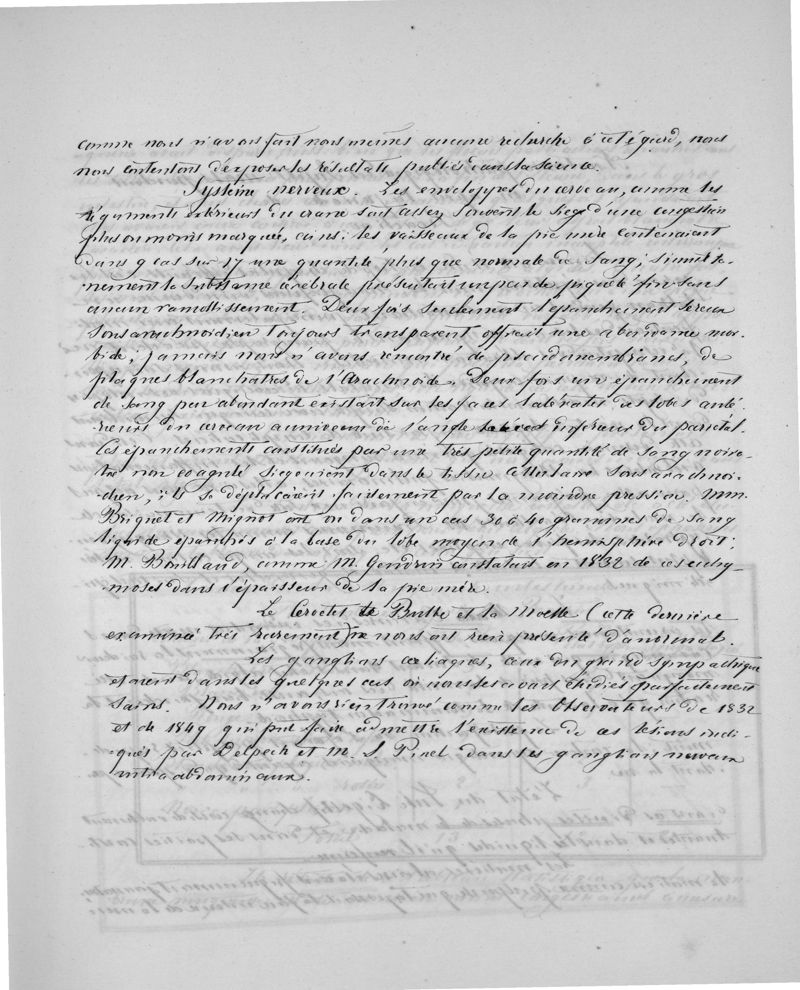 comme nous n'avons fait nous mêmes aucune recherche à cet égard, nous
nous contentons d'exposer les résultats publiés dans la science.
Système nerveux. Les enveloppes du cerveau, comme les
téguments extérieurs du crane sont assez souvent le siège d'une congestion
plus ou moins marquée, ainsi: les vaisseaux de la pie mère contenaient
dans 9 cas sur 17 une quantité plus que normale de sang; simulta-
nément la substance cérébrale présentait un peu de piqueté fin sans
aucun ramollissement. Deux fois seulement l'épanchement séreux
sous arachnoïdien toujours transparent offrait une abondance mor-
bide; jamais nous n'avons rencontré de pseudomembranes, de
plaques blanchatres de l'Arachnoïde. Deux fois un épanchement
de sang peu abondant existait sur les faces latérales des lobes anté-
rieurs du cerveau au niveau de l'angle inférieur du pariétal.
Ces épanchements constitués par une très petite quantité de sang noirâ-
tre non coagulé siégeaient dans le tissu cellulaire sous arachnoï-
dien, ils se déplaçaient facilement par la moindre pression. Mm.
Briquet et Mignot ont vu dans un cas 30 à 40 grammes de sang
liquide épanchés à la base du lobe moyen de l'hémisphère droit;
M. Bouillaud, comme M. Gendrin constatait en 1832 de ces ecchy-
moses dans l'épaisseur de la pie mère.
Le Cervelet le Bulbe et la Moelle (cette dernière
examinée très rarement) ne nous ont rien présenté d'anormal.
Les ganglions cœliaques, ceux du grand sympathique
étaient dans les quelques cas où nous les avons étudiés parfaitement
sains. Nous n'avons rien trouvé comme les observateurs de 1832
et de 1849 qui put faire admettre l'existence de ces lésions indi-
qués par Delpech et M. S. Pinel dans les ganglions nerveux
intra abdominaux.